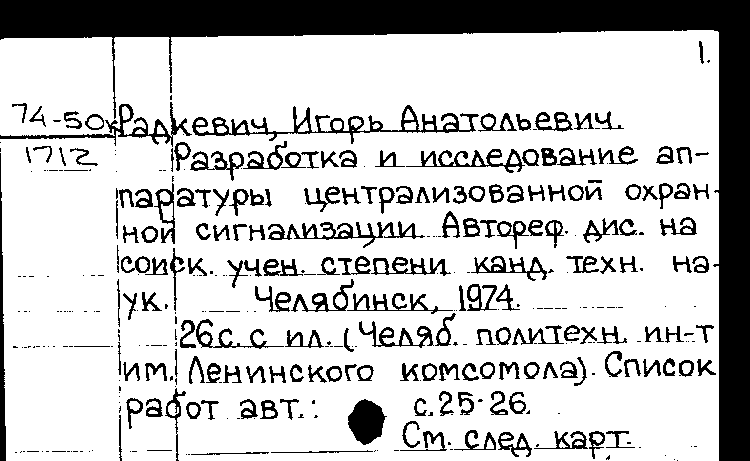 1.
74-50к Радкевич, Игорь Анатольевич.
1712 Разработка и исследование ап-
паратуры централизованной охран-
ной сигнализации. Автореф. дис. на
соиск. учен. степени канд. техн. на-
ук. Челябинск, 1974.
26с. с ил. (Челяб. политехн. ин-т
им. Ленинского комсомола). Список
работ авт.: с.25-26.
См. след. карт.